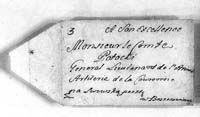 3
A Son Excellence
Monsieur le Comte
Potocki
General Lieutenant de l'
Artilerie de la Couronne